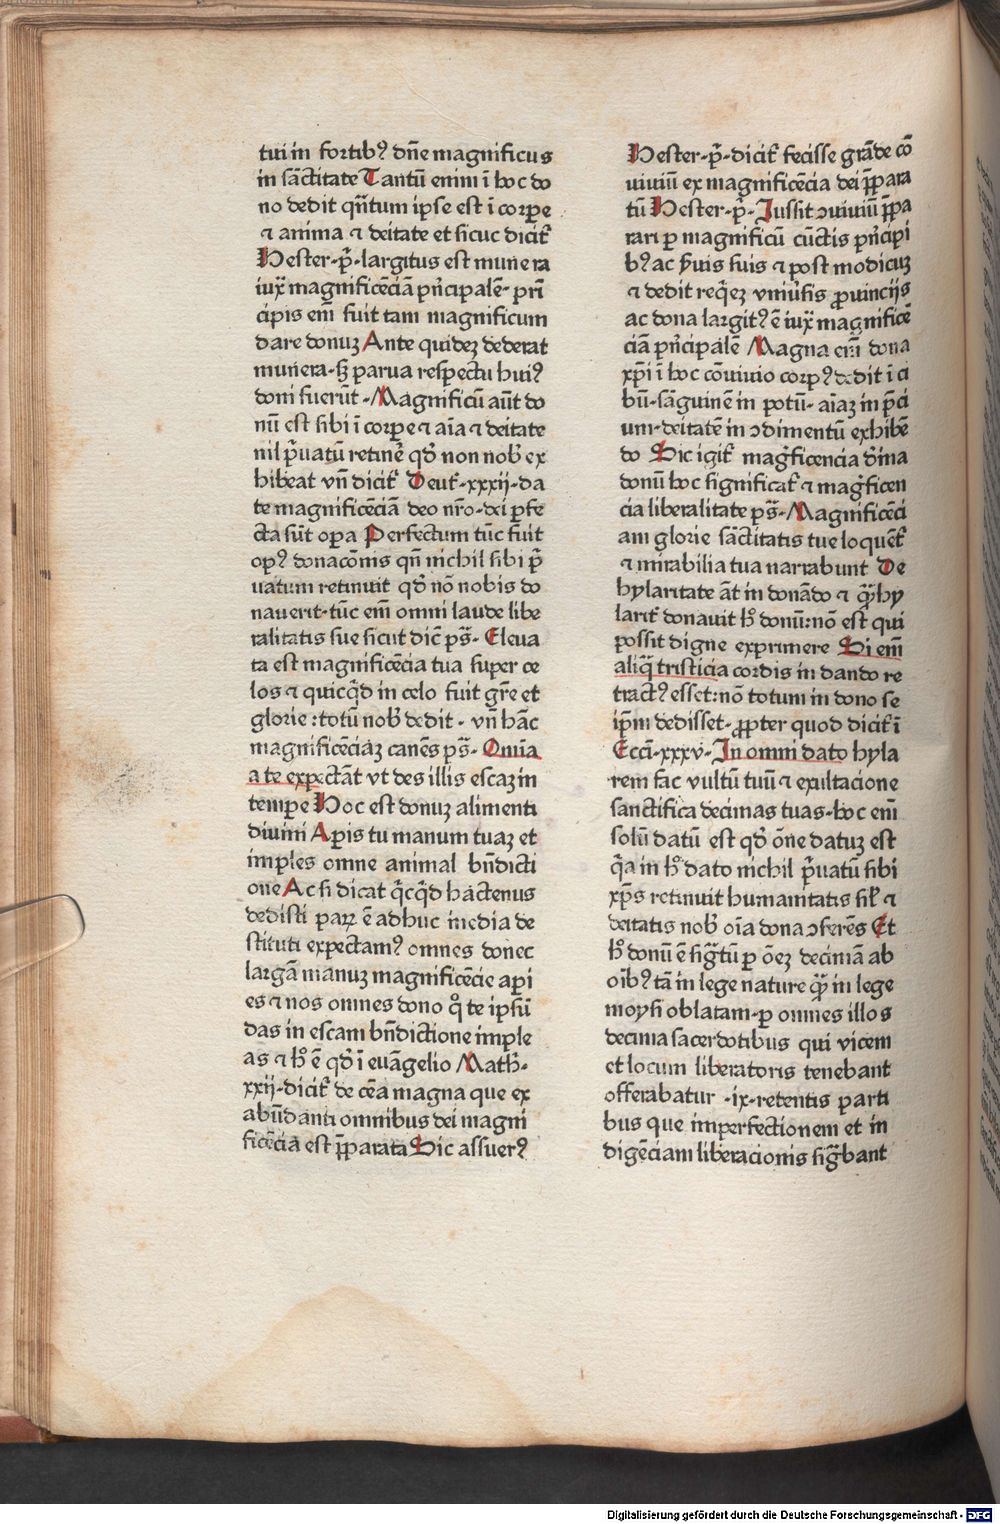 tui in fortibꝰ dn̄e magnificus
in sāctitate Tantū enim ī hoc do
no dedit qn̄tum ipse est ī corpe
⁊ anima ⁊ deitate et sicuc dicit᷑
Hester·p̄·largitus est munera
iux̄ magnificēciā pn̄cipalē·prī
cipis em̄ fuit tam magnificum
dare donuꝫ Ante quideꝫ dederat
munera·sꝫ parua respectu huiꝰ
doni fuerūt·Magnificū aūt do
nū est sibi ī corpe ⁊ aīa ⁊ deitate
nil p̄uatū retinē qd̄ non nob̄ ex
hibeat vn̄ dicit᷑ Deut᷑·xxxij·da
te magnificēciā deo nr̄o·dei ꝑfe
cta sūt opa Perfectum tūc fuit
opꝰ donacōnis qn̄ nichil sibi p̄
uatum retinuit qd̄ nō nobis do
nauerit·tūc em̄ omni laude libe
ralitatis sue sicut dic̄ ps̄·Eleua
ta est magnificēcia tua super ce
los ⁊ quicq̄d in celo fuit gr̄e et
glorie:totū nob̄ dedit·vn̄ hāc
magnificēciaꝫ canēs ps̄·Omīa
a te expectāt vt des illis escaꝫ in
tempe Hoc est donuꝫ alimenti
diuini Apis tu manum tuaꝫ et
imples omne animal bn̄dicti
one Ac si dicat q̄cq̄d hactenus
dedisti parꝫ ē adhuc inedia de
stituti expectamꝰ omnes donec
largā manuꝫ magnificēcie api
es ⁊ nos omnes dono q̊ te ipsū
das in escam bn̄dictione imple
as ⁊ h̄ ē qd̄ ī euāgelio Math̄·
xxij·dicit᷑ de cēa magna que ex
abūdanti omnibus dei magni
ficēcia est p̄parata Hic assuerꝰ
Hester·p̄·dicit᷑ fecisse grāde cō
uiuiū ex magnificēcia dei p̄para
tū Hester·p̄·Jussit ↄuiuiū p̄pa
rari ꝑ magnificū cūctis pn̄cipi
bꝰ ac s̄uis suis ⁊ post modicuꝫ
⁊ dedit req̄eꝫ vniūsis prouincijs
ac dona largitꝰ ē iux̄ magnificē
ciā pn̄cipalē Magna em̄ dona
xp̄i ī hoc cōuiuio corpꝰ dedit ī ci
bū·sāguinē in potū·aīaꝫ in p̄ci
um·deitatē in ↄdimentū exhibē
do Hic igit᷑ mag̊ficencia d̄ina
donū hoc significat᷑ ⁊ mag̊ficen
cia liberalitate ps̄·Magnificēci
am glorie sāctitatis tue loquēt᷑
⁊ mirabilia tua narrabunt De
hylaritate āt in donādo ⁊ q̄ hy
larit᷑ donauit h̄ donū:nō est qui
possit digne exprimere Si em̄
aliq̄ tristicia cordis in dando re
tractꝰ esset:nō totum in dono se
ip̄m dedisset·ꝓpter quod dicit᷑ ī
Ecci·xxxv·In omni dato hyla
rem fac vultū tuū ⁊ exultacione
sanctifica decimas tuas·hoc em̄
solū datū est qd̄ ōne datuꝫ est
q̄a in h̄ dato nichil p̄uatū sibi
xp̄s retinuit humanitatis sil᷑ ⁊
deitatis nob̄ oīa dona ↄferēs Et
h̄ donū ē fig̊tū ꝑ ōeꝫ decimā ab
oīb̄ꝰ tā in lege nature q̄ in lege
moysi oblatam·ꝑ omnes illos
decima sacerdotibus qui vicem
et locum liberatoris tenebant
offerabatur·ix·retentis parti
bus que imperfectionem et in
digēciam liberacionis fig̊bant
Digitalisierung gefördert durch die Deutsche Forschungsgemeinschaft - DFG